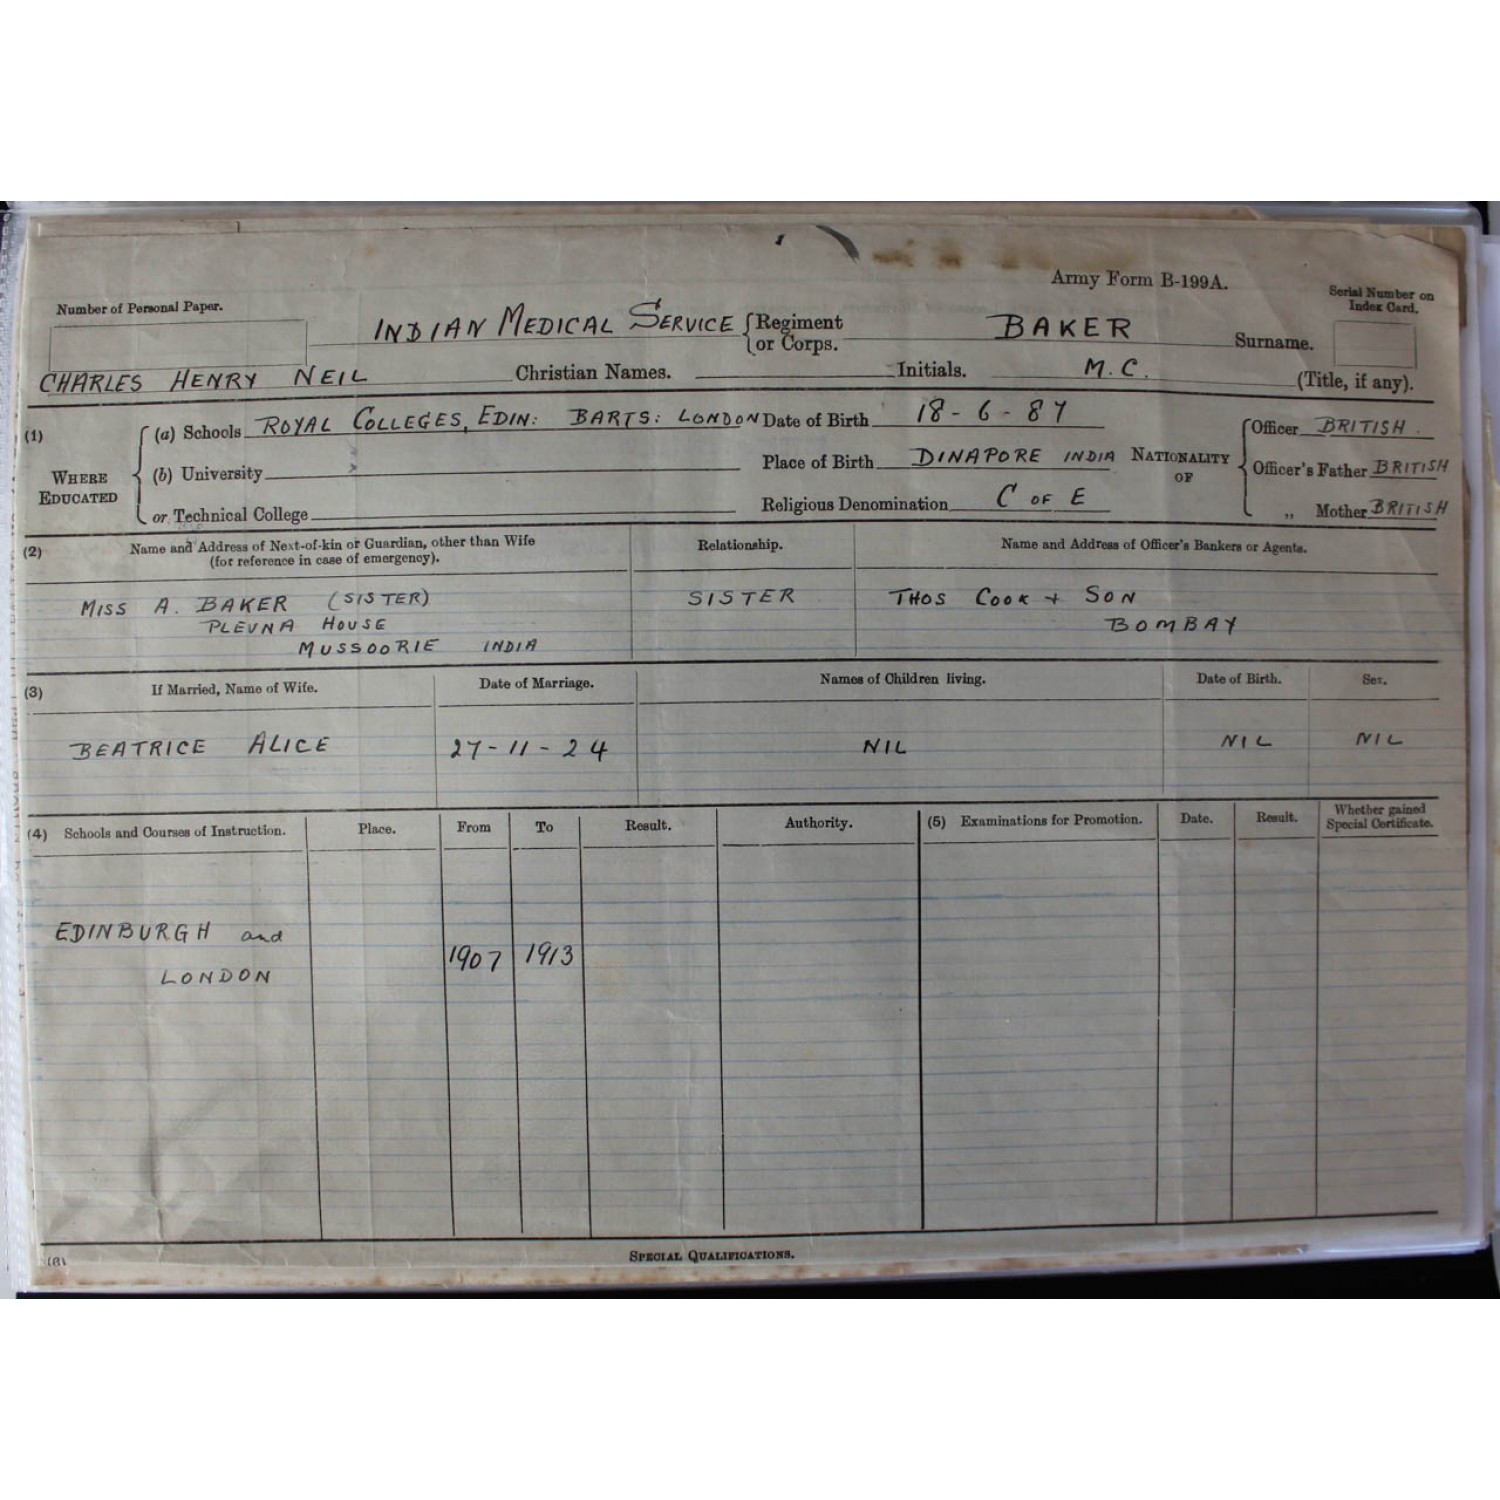 Army Form B-199A.
Number of Personal Paper.
Serial Number on
Index Card.
INDIAN MEDICAL SERVICE { Regiment or Corps. BAKER Surname.
CHARLES HENRY NEIL Christian Names. Initials. M.C. (Title, if any).
(1) WHERE EDUCATED
(a) Schools ROYAL COLLEGES, EDIN: BARTS: LONDON Date of Birth 18-6-87
Officer BRITISH.
(b) University
Place of Birth DINAPORE INDIA NATIONALITY OF
Officer's Father BRITISH
or Technical College
Religious Denomination C OF E
„ Mother BRITISH
(2) Name and Address of Next-of-kin or Guardian, other than Wife
(for reference in case of emergency).
Relationship.
Name and Address of Officer's Bankers or Agents.
MISS A. BAKER (SISTER)
PLEVNA HOUSE
MUSSOORIE INDIA
SISTER
THOS COOK + SON
BOMBAY
(3) If Married, Name of Wife. Date of Marriage. Names of Children living. Date of Birth. Sex.
BEATRICE ALICE 27-11-24 NIL NIL NIL
(4) Schools and Courses of Instruction. Place. From To Result. Authority. (5) Examinations for Promotion. Date. Result. Whether gained
Special Certificate.
EDINBURGH and
LONDON
1907 1913
(6) SPECIAL QUALIFICATIONS.